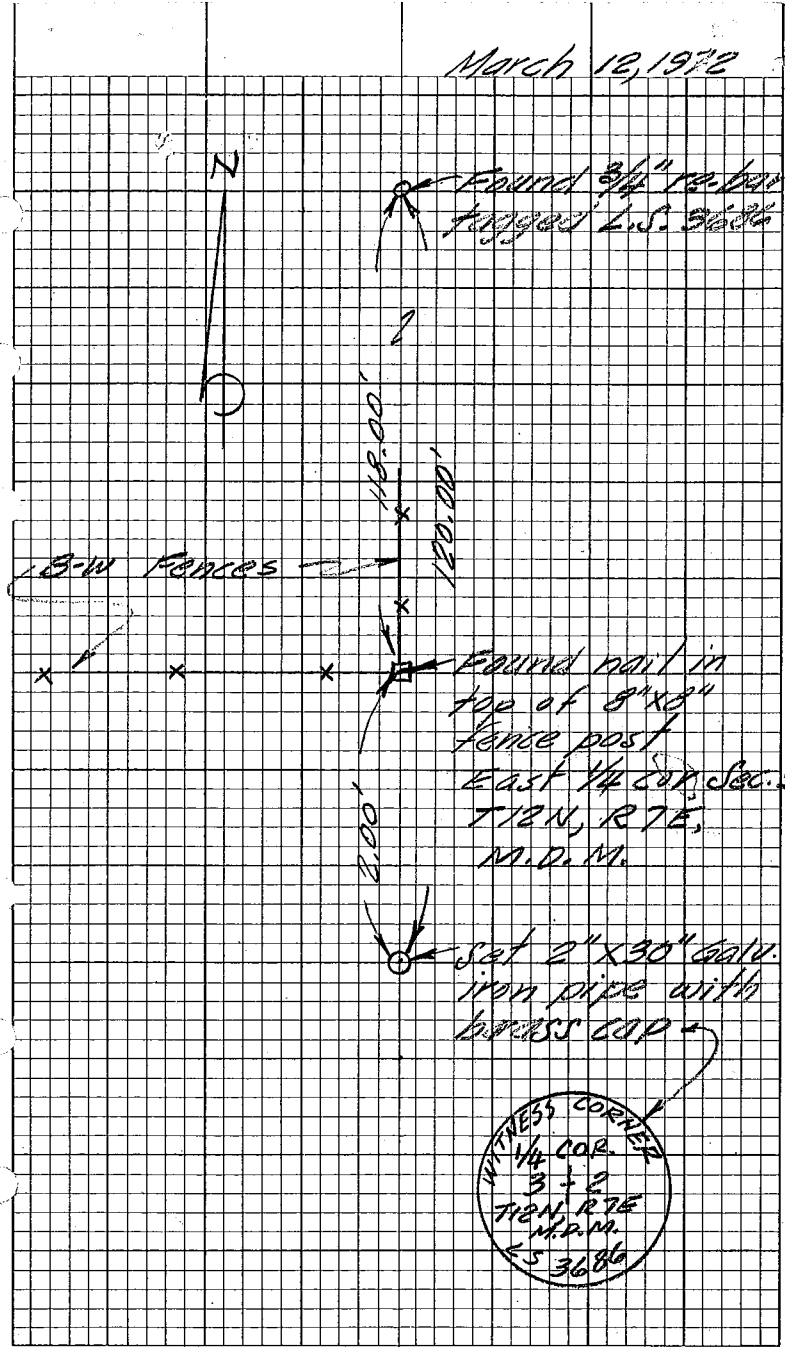 March 12, 1972
N
Found 3/4" re-bar
tagged L.S. 3686
118.00'
120.00'
B-W Fences
Found nail in
top of 8"X8"
fence post
East 1/4 cor. Sec.
T12N, R7E,
M.D.M.
2.00'
Set 2"X30" Galv.
iron pipe with
brass cap
WITNESS CORNER
1/4 COR.
3 + 2
T12N, R7E
M.D.M.
LS 3686